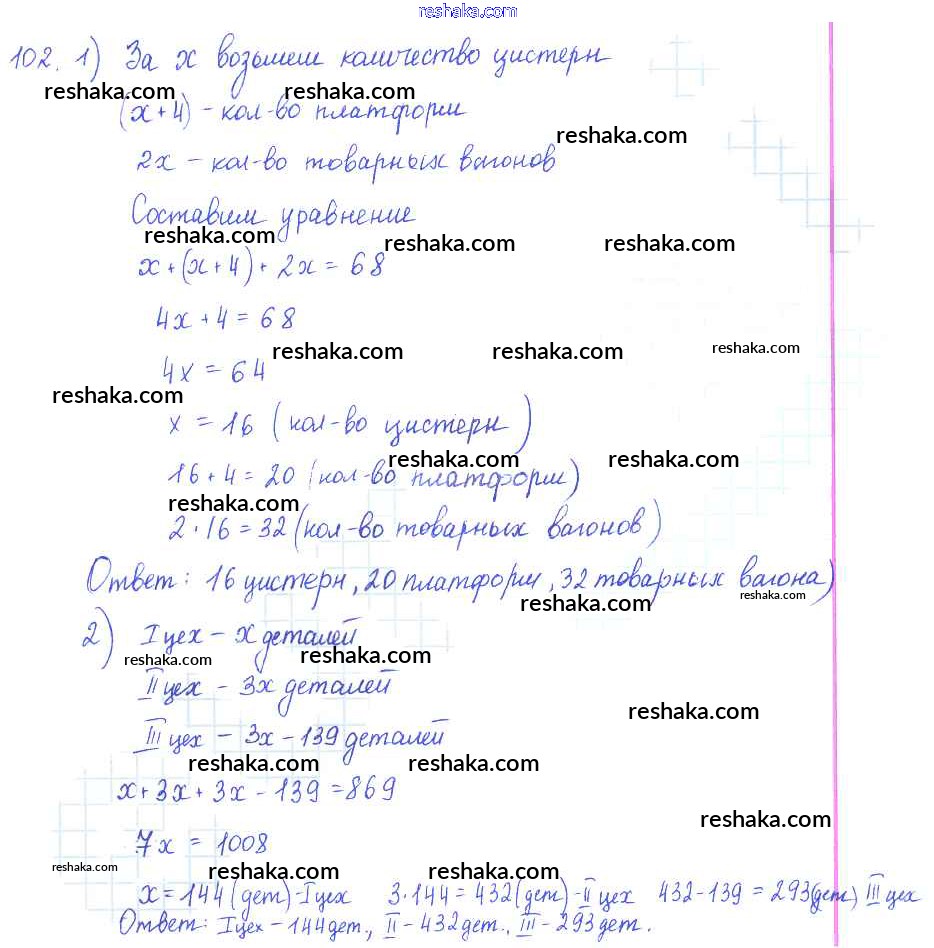 reshaka.com
102. 1) За x возьмем количество цистерн
reshaka.com reshaka.com
(x+4) - кол-во платформ
reshaka.com
2x - кол-во товарных вагонов
Составим уравнение
reshaka.com reshaka.com reshaka.com
x+(x+4)+2x=68
4x+4=68
reshaka.com reshaka.com reshaka.com
4x=64
reshaka.com
x=16 (кол-во цистерн)
reshaka.com reshaka.com
16+4=20 (кол-во платформ)
reshaka.com
2·16=32 (кол-во товарных вагонов)
Ответ: 16 цистерн, 20 платформ, 32 товарных вагона)
reshaka.com reshaka.com
2) I цех - x деталей
reshaka.com reshaka.com
II цех - 3x деталей
reshaka.com
III цех - 3x-139 деталей
reshaka.com reshaka.com
x+3x+3x-139=869
reshaka.com
7x = 1008
reshaka.com reshaka.com reshaka.com reshaka.com
x=144 (дет)-I цех 3·144=432 (дет)-II цех 432-139=293(дет) III цех
Ответ: I цех-144 дет., II-432 дет., III-293 дет.